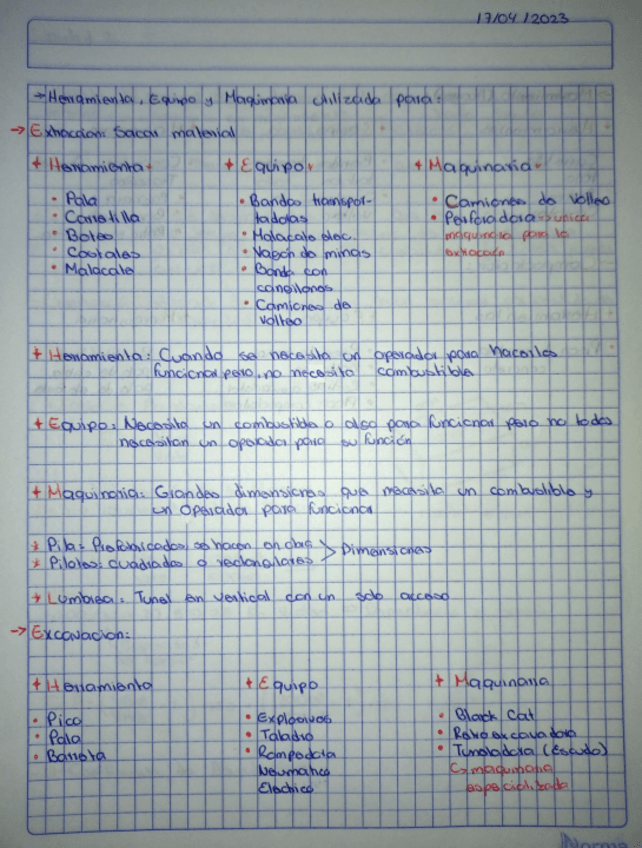 17/04/2023
→ Herramienta, Equipo y Maquinaria utilizada para:
→ Extraccion: Sacar material
+ Herramienta + Equipo + Maquinaria
• Pala
• Carretilla
• Boteo
• Costales
• Malacate
• Bandas transpor-
tadoras
• Malacate elec.
• Vagon de minas
• Banda con
cangilones
• Camiones de
volteo
• Camiones de volteo
• Perforadora → unica
maquinaria para la
extraccion
+ Herramienta: Cuando se necesita un operador para hacerlos
funcionar pero, no necesita combustible
+ Equipo: Necesita un combustible o algo para funcionar pero no todos
necesitan un operador para su función
+ Maquinaria: Grandes dimensiones que necesita un combustible y
un Operador para funcionar
* Pila: Prefabricados se hacen en obra > Dimensiones
* Pilotes: cuadrados o rectangulares
+ Lumbrea: Tunel en vertical con un solo acceso
→ Excavacion:
+ Herramienta + Equipo + Maquinaria
• Pico
• Pala
• Barreta
• Explosivos
• Taladro
• Rompedora
Neumatica
Electrica
• Black Cat
• Retroexcavadora
• Tuneladora (Escudo)
↳ maquinaria
especializada
Norma